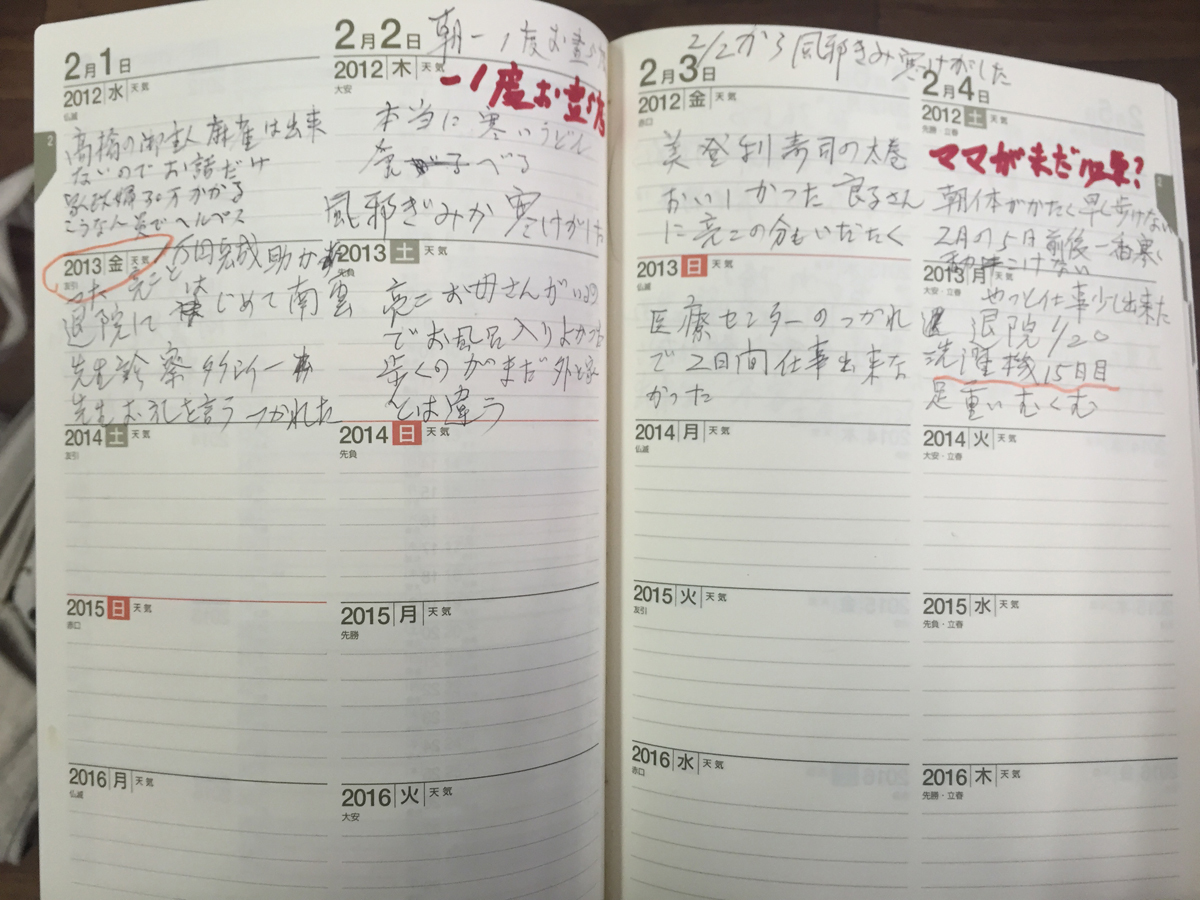 2月1日
2012 水 天気
仏滅
高橋の御主人麻雀は出来
ないのでお話だけ
家政婦30万かかる
こうなん までヘルペス
2013 金 天気
友引
万円完成助かっ
った 亮ことは
退院にはじめて南雲
先生診察 一
先生お礼を言うつかれた
2014 土 天気
友引
2015 日 天気
赤口
2016 月 天気
仏滅
2月2日
朝-1度お昼
2012 木 天気
大安
-1度お昼
本当に寒いうどん
食べる
風邪ぎみか寒けがした
2013 土 天気
先負
亮二お母さんがいるの
でお風呂入りよかった
歩くのがまだ外と家
とは違う
2014 日 天気
先負
2015 月 天気
先勝
2016 火 天気
大安
2/2から風邪ぎみ寒けがした
2月3日
2012 金 天気
赤口
美登利寿司の太巻
おいしかった 良子さん
に亮二の分もいただく
2013 日 天気
医療センターのつかれ
で2日間仕事出来な
かった
2014 月 天気
仏滅
2015 火 天気
友引
2016 水 天気
赤口
2月4日
2012 土 天気
先勝・立春
ママがまだ
朝体がかたく早く歩けない
2月の5日前後一番寒く
2013 月 天気
大安・立春
やっと仕事少し出来た
退院1/20
洗濯機15日目
足重いむくむ
2014 火 天気
大安・立春
2015 水 天気
先負・立春
2016 木 天気
先勝・立春